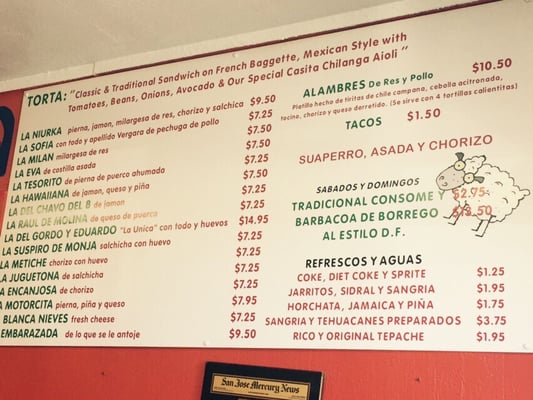 TORTA: "Classic & Traditional Sandwich on French Baggette, Mexican Style with
Tomatoes, Beans, Onions, Avocado & Our Special Casita Chilanga Aioli"
LA NIURKA pierna, jamon, milargesa de res, chorizo y salchica $9.50
LA SOFIA con todo y apellido Vergara de pechuga de pollo $7.25
LA MILAN milargesa de res $7.50
LA EVA de castilla asada $7.50
LA TESORITO de pierna de puerco ahumada $7.25
LA HAWAIIANA de jamon, queso y piña $7.50
LA DEL CHAVO DEL 8 de jamon $7.25
LA RAUL DE MOLINA de queso de puerco $7.25
LA DEL GORDO Y EDUARDO "La Unica" con todo y huevos $14.95
LA SUSPIRO DE MONJA salchicha con huevo $7.25
LA METICHE chorizo con huevo $7.25
LA JUGUETONA de salchicha $7.25
LA ENCANJOSA de chorizo $7.25
LA MOTORCITA pierna, piña y queso $7.95
BLANCA NIEVES fresh cheese $7.25
EMBARAZADA de lo que se le antoje $9.50
ALAMBRES De Res y Pollo $10.50
Platillo hecho de tiritas de chile campana, cebolla acitronada,
tocino, chorizo y queso derretido. (Se sirve con 4 tortillas calientitas)
TACOS $1.50
SUAPERRO, ASADA Y CHORIZO
SABADOS Y DOMINGOS
TRADITIONAL CONSOME Y $2.75
BARBACOA DE BORREGO $13.50
AL ESTILO D.F.
REFRESCO Y AGUAS
COKE, DIET COKE Y SPRITE $1.25
JARRITOS, SIDRAL Y SANGRIA $1.95
HORCHATA, JAMAICA Y PIÑA $1.75
SANGRIA Y TEHUACANES PREPARADOS $3.75
RICO Y ORIGINAL TEPACHE $1.95
San Jose Mercury News